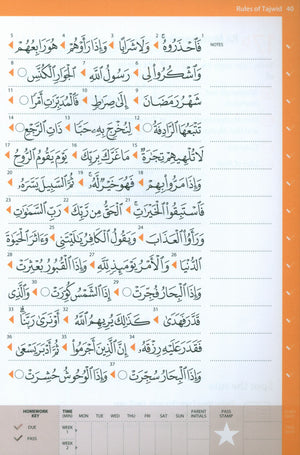 Rules of Tajwid 40
NOTES
1 فَٱحْذَرُوهُ 2 وَلَا شَرَابًا 3 وَإِذَا رَأَوْهُمْ 4 هُوَ رَابِعُهُمْ 5
وَٱشْكُرُوا۟ لِى 6 رَسُولُ ٱللَّهِ 7 ٱلْجَوَارِ ٱلْكُنَّسِ 8
شَهْرُ رَمَضَانَ 9 إِلَىٰ صِرَٰطِ 10 فَٱلْمُدَبِّرَٰتِ أَمْرًا 11
تَتْبَعُهَا ٱلرَّادِفَةُ 12 لِّنُخْرِجَ بِهِۦ حَبًّا 13 ذَاتِ ٱلرَّجْعِ 14
لَا تُلْهِيهِمْ تِجَٰرَةٌ 15 مَا غَرَّكَ بِرَبِّكَ 16 يَوْمَ يَقُومُ ٱلرُّوحُ 17
وَإِذَا مَرُّوا۟ بِهِمْ 18 فَهُوَ خَيْرٌ لَّهُۥ 19 ثُمَّ ٱلسَّبِيلَ يَسَّرَهُۥ 20
فَٱسْتَبِقُوا۟ ٱلْخَيْرَٰتِ 21 ٱلْحَقُّ مِن رَّبِّكَ 22 رَبِّ ٱلسَّمَٰوَٰتِ 23
وَرَأَوُا۟ ٱلْعَذَابَ 24 وَيَقُولُ ٱلْكَافِرُ يَٰلَيْتَنِى 25 وَءَاثَرَ ٱلْحَيَوٰةَ
ٱلدُّنْيَا 26 وَٱلْأَمْرُ يَوْمَئِذٍ لِّلَّهِ 27 وَإِذَا ٱلْقُبُورُ بُعْثِرَتْ
وَإِذَا ٱلْبِحَارُ فُجِّرَتْ 29 إِذَا ٱلشَّمْسُ كُوِّرَتْ 30 وَٱلَّذِى
قَدَّرَ فَهَدَىٰ 31 كَذَٰلِكَ يُرِيهِمُ ٱللَّهُ 32 أَوْ نَرَىٰ رَبَّنَا 33
فَقَدَرَ عَلَيْهِ رِزْقَهُۥ 34 إِنَّ ٱلَّذِينَ أَجْرَمُوا۟ 35 ثُمَّ أَدْبَرَ يَسْعَىٰ 36
وَإِذَا ٱلْبِحَارُ سُجِّرَتْ 37 وَإِذَا ٱلْوُحُوشُ حُشِرَتْ
HOMEWORK KEY TIME (MIN) MON TUE WED THU FRI SAT SUN PARENT INITIALS PASS STAMP
DUE WEEK 1
PASS WEEK 2